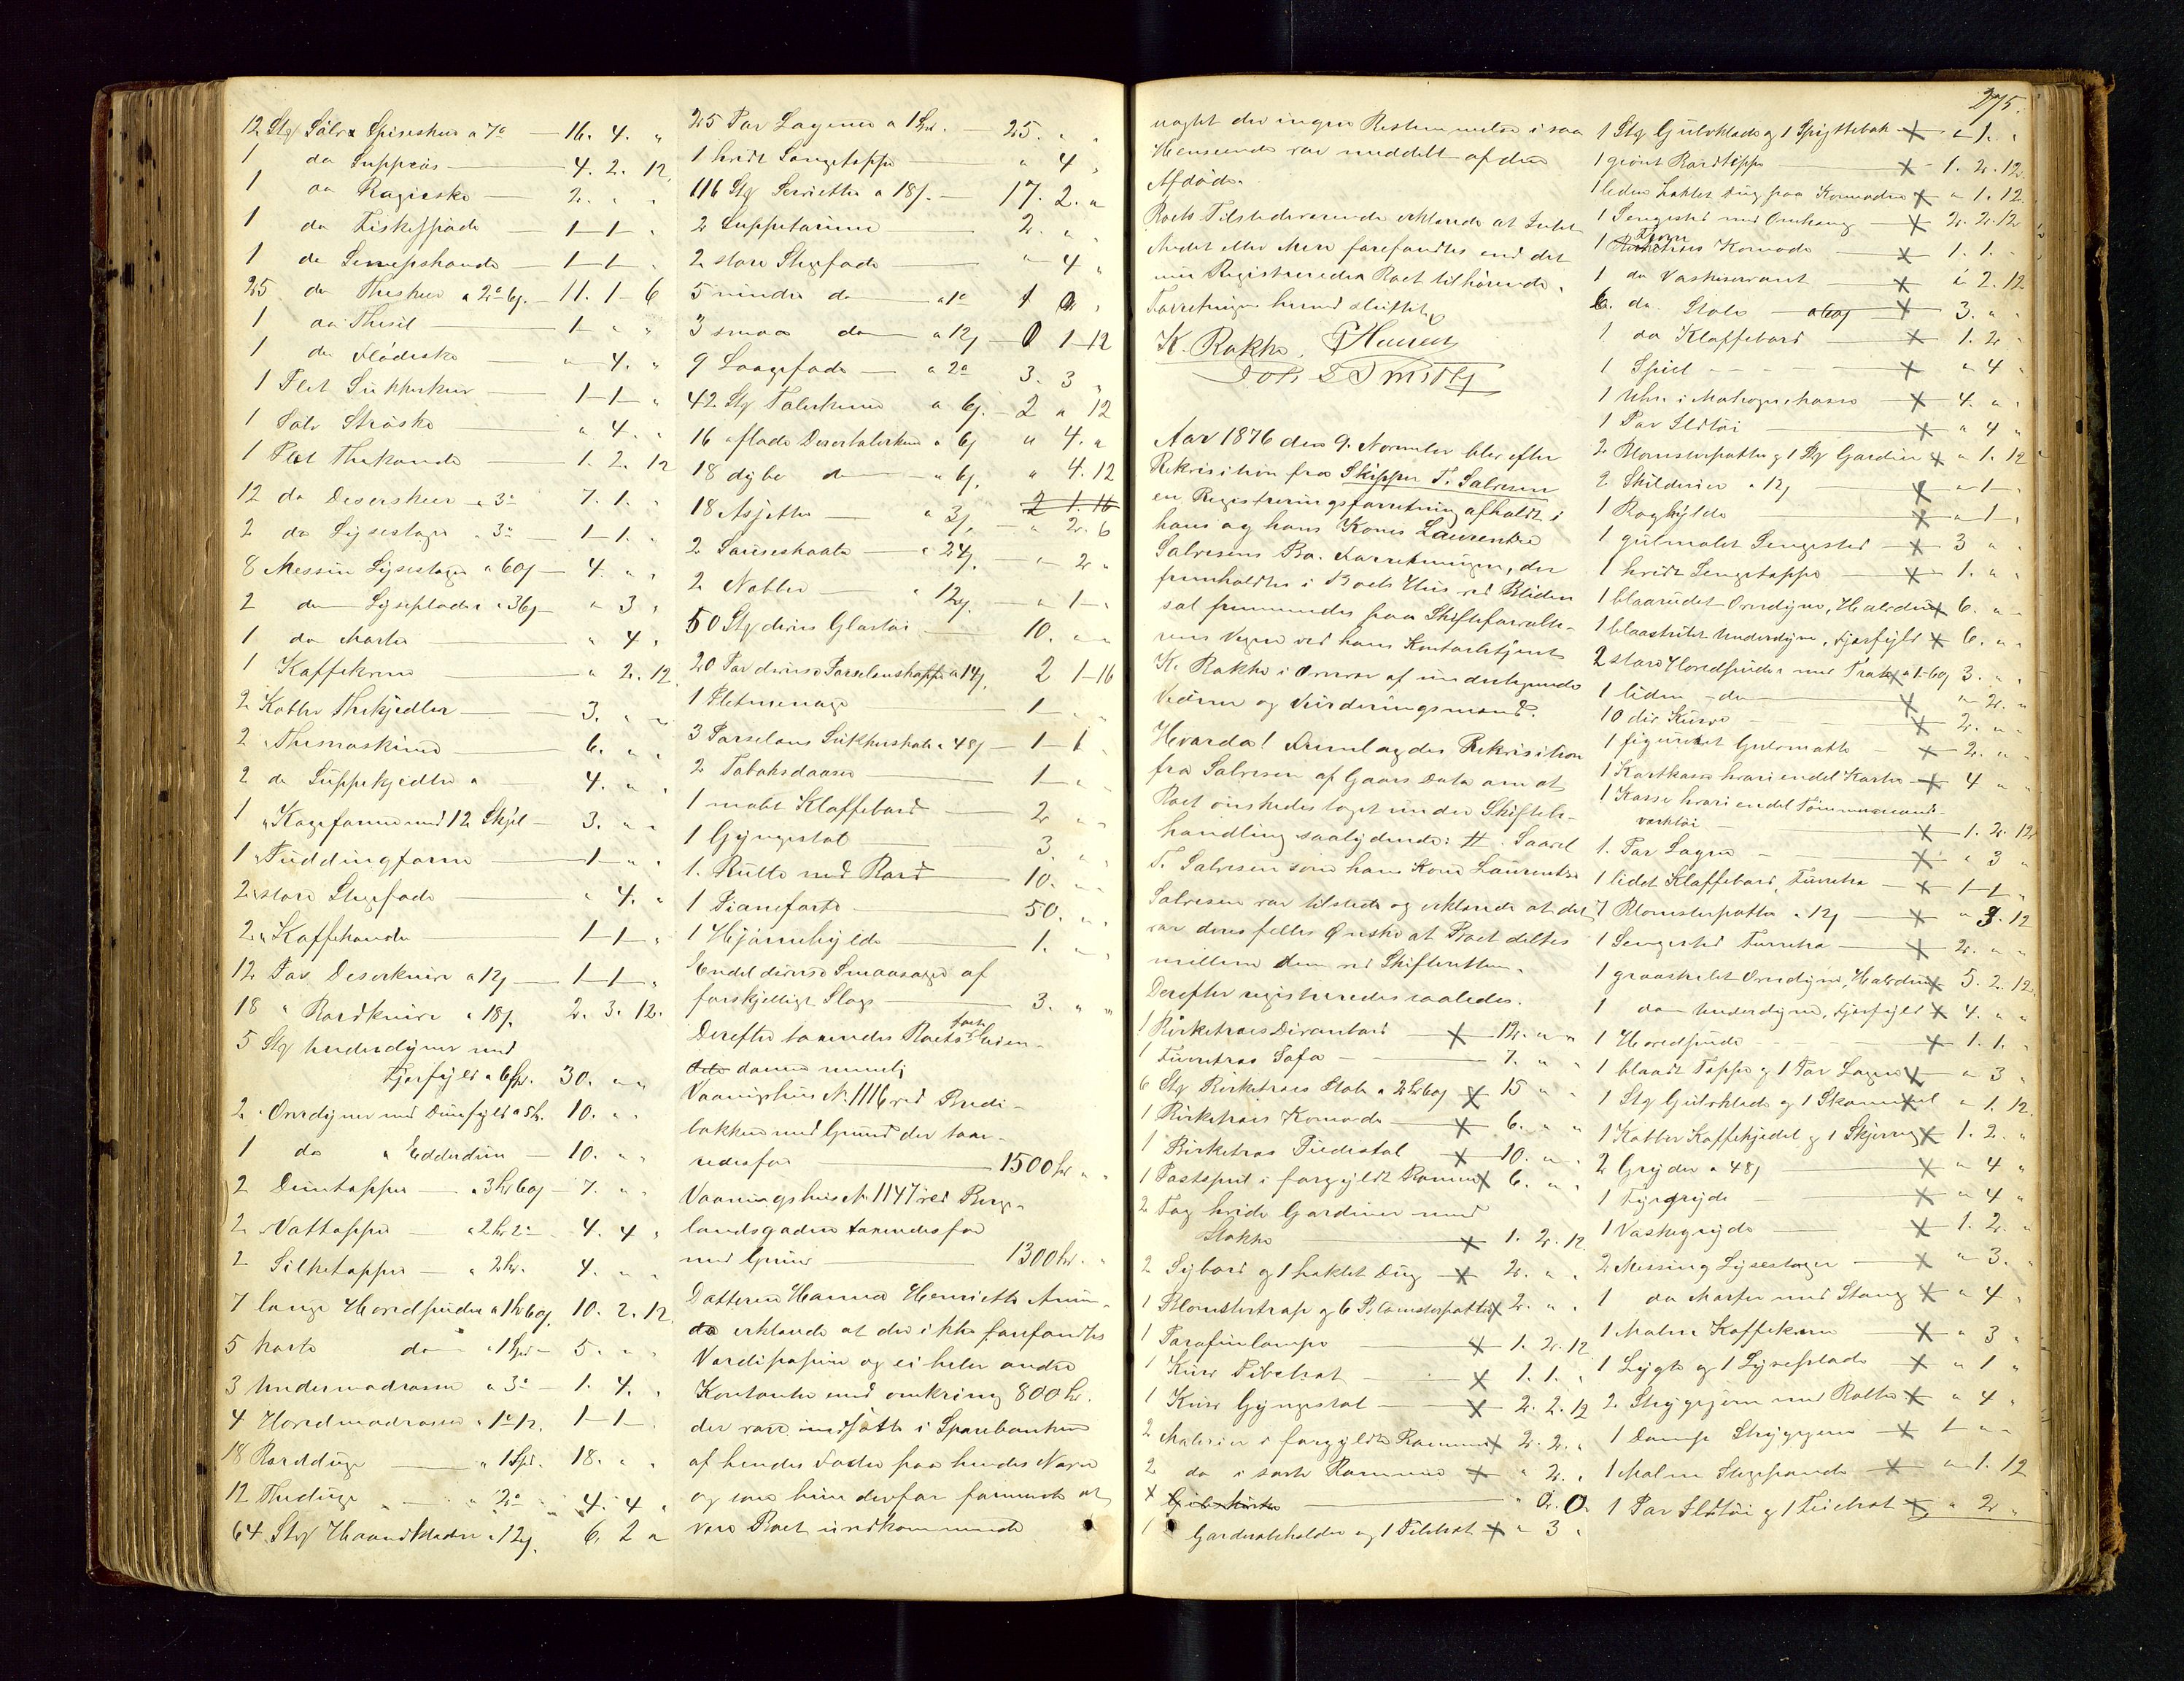 12 Stq Sölv Spiseskeer a 7o — 16. 4. "
1 do Suppeøs — 4. 2. 12
1 do Raguske — 2. " "
1 do Fiskespade — 1 — 1 — "
1 do Sennepskande — 1 — 1 — "
25 do Theskeer a 2o 6ß. — 11. 1 — 6
1 do Thesil — 1 — " "
1 do Flödeske — " 4. "
1 Plet Sukkerkurv — 1 — 1 — "
1 Sölv Ströske — " 4. "
1 Plet Thekande — 1. 2. 12
12 do Desertskeer a 3o 7. 1. "
2 do Lysestager a 3o — 1 — 1. "
8 Messing Lysestager a 60ß — 4. " "
2 do Lyseplader a 36ß — " 3 "
1 do Morter — " 4 "
1 Kaffekvern — " 2. 12
2 Kobber Thekjedler — 3. " "
2 " Themaskiner — 6. " "
2 do Suppekjedler a — 4. " "
1 " Kageforme med 12 Skjel — 3. " "
1 " Puddingform — 1 — " "
2 " store Stegefade — " 4. "
2 " Kaffekander — 1 — 1. "
12 Par Desertknive a 12ß — 1 — 1 — "
18 " Bordknive a 18ß. 2. 3. 12.
5 Stq Underdyner med
Fjerfyld a 6 Spd. 30. " "
2 " Overdyner med Duunfyld a 5 Sp. 10. " "
1 do " Edderduun — 10. " "
2 Duuntepper — a 3 Spd 60ß — 7. " "
2 " Vattepper — a 2 Spd 2o — 4. 4 "
2 Silketepper — a 2 Spd. 4. " "
7 lange Hovedpuder a 1 Spd 60ß. 10. 2. 12
5 korte do a 1 Spd — 5. " "
3 Undermadrasser a 3o — 1. 4. "
4 Hovedmadrasser a 1o 12. 1 — 1 — "
18 Bordduge — a 1 Spd. 18. " "
12 Theduge " — " 2o " 4. 4 "
64. Stq Haandklæder a 12ß. 6. 2 "
25 Par Lagener a 1 Spd. 25. " "
1 hvidt Sengeteppe — " 4 "
116 Stq Servietter a 18ß. — 17. 2. "
2 Suppeteriner — 2. " "
2 store Stegefade — " 4 "
5 mindre do — a 1o 1 0 "
3 smaa do — a 12ß — 0 1 — 12
9 Laagefade — a 2o 3. 3 "
42 Stq Talerkener a 6ß. — 2 " 12
16 " flade Deserttalerkener a 6ß " 4. "
18 dybe do — a 6ß. " 4. 12
2 1. 16
18 Asjetter — a 3ß. — " 2. 6
2 Sauseskaaler — a 24ß. " 2 "
2 Nabber — a 12ß. — " 1 — "
50 Stq diverse Glastöi — 10. " "
20 Par diverse Porselænskopper a 14ß. 2 1 — 16
1 Pletmenage — 1 " "
3 Porselæns Sukkerskaaler a 48ß — 1 — 1 "
2 Tobaksdaaser — 1 — "
1 malet Klaffebord — 2 " "
1 Gyngestol — 3. " "
1. Rulle med Bord — 10. " "
1 Pianoforte — 50. " "
1 Hjörnehylde — 1. " "
Endel diverse Smaasager af
forskjelligt Slags — 3. " "
Derefter toxeredes Boets faste Eien-
domme nemlig
Vaaningshus No. 1116 ved Bredi-
bakken med Grund der toxe-
redes for — 1500 Spd. " "
Vaaningshus No. 1147 ved Berge-
landsgaden toxeredes for
med Grund — 1300 Spd. " "
Datteren Hanna Henriette Aman-
da erklærede at der ikke forefandtes
Verdipapirer og ei heller andre
Kontanter end omkring 800 Spd.
der vare indsatte i Sparebanken
af hendes Fader paa hendes Navn
og som hun derfor formente at
være Boet uvedkommende
uagtet der ingen Bestemmelse i saa
Henseende var meddelt af den
Afdöde.
Boets Tilstedeværende erklærede at Intet
Andet eller Mere forefandtes end det
nu Registrerede Boet tilhörende.
Forretningen hermed sluttet
K. Bakke. P Hansen
Joh S Smith
Aar 1876 den 9. November blev efter
Rekvisition fra Skipper T. Salvesen
en Registreringsforretning afholdt i
hans og hans Kones Laurentze
Salvesens Bo. Forretningen, der
fremholdtes i Boets Hus ved Bliden
sol fremmedes paa Skifteforvalte-
rens Vegne ved hans Kontorbetjent
K. Bakke i Overvær af undertegnede
Vidner og Vurderingsmænd.
Hvorda! Fremlagdes Rekvisition
fra Salvesen af Gaars Dato om at
Boet önskedes taget under Skiftebe-
handling saalydende: #. Saavel
T. Salvesen som hans Kone Laurentze
Salvesen var tilstede og erklærede at det
var deres felles Önske at Boet deltes
mellem dem ved Skifteretten.
Derefter registreredes saaledes.
1 Birketræes Divanbord — x 12. " "
1 Furutræs Sofa — 7. " "
6 Stq Birketræes Stole a 2 Spd 60ß x 15 " "
1 Birketræes Komode — x 6. " "
1 Birketræs Piedestal x 10. " "
1 Postspeil i forgyldt Ramme x 6. " "
2 Fag hvide Gardiner med
Stokke — x 1. 2. 12
2 Sybord og 1 heklet Dug — x 2. " "
1 Blomstertrap og 6 Blomsterpotter x 2. " "
1 Parafinlampe — x 1. 2. 12
1 Kurv Pibebret — x 1. 1. "
1 Kurv Gyngestol — x 2. 2. 12
2 Malerier i forgyldte Rammer x 2. 2. "
2 do i sorte Rammer x " 2. "
x — 0. 0.
1 Garderobeholder og 1 Pibebret x " 3 "
275.
1 Stq Gulvklæde og 1 Spyttebak x " 1. "
1 grönt Bordteppe — x 1. 2. 12
1 liden heklet Dug paa Komoden x " 1. 12
1 Sengested med Omheng — x 2. 2. 12
1 Komode — x 1. 1. "
1 do Vaskeservant — x " 2. 12
6. do Stole — a 60ß — x 3. " "
1 do Klaffebord — x 1. 2 "
1 Speil — x " 4 "
1 Uhr i Mahogni Kasse — x 4. " "
1 Par Ildtöi — x " 4 "
2 Blomsterpotter og 1 Stq Gardin x " 1. 12
2 Skilderier a 12ß x " 1 — "
1 Boghylde x " 1 "
1 gulmalet Sengested — x 3 " "
1 hvidt Sengeteppe — x 1. " "
1 blaarudet Overdyne, Halvduun x 6. " "
1 blaastribet Underdyne, Fjerfyld x 6. " "
2 store Hovedpuder med Trek x a 1-60 3. " "
1 liden do — x " 2. "
10 div Kurve — x 2. " "
1 figureret Gulvmatte — x 2. " "
1 Kortkasse hvori endel Korter — x 4 " "
1 Kasse hvori endel Tömmermands-
verktöi — x 1. 2. 12
1. Par Lagen — x " 3 "
1 lidet Klaffebord, Furutræ — x 1 — 1 "
7 Blomsterpotter a 12ß — x " 3. 12
1 Sengested Furutræ — x 2. " "
1 graastribet Overdyne, Halvduun x 5. 2. 12.
1 do Underdyne, Fjerfyld x 4. " "
1 Hovedpude — x 1. 1. "
1 blaat Teppe og 1 Par Lagen x " 3 "
1 Stq Gulvklæde og 1 Skammel x " 1. 12.
1 Kobber Kaffekjedel og 1 Skjerm x 1. 2. "
2 Gryder a 48ß — x " 4 "
1 Fyrgryde — x " 4 "
1 Vaskegryde — x 1. 2. "
2 Messing Lysestager — x " 3. "
1 do Morter med Stang x " 4 "
1 Malm Kaffekvern — x " 3 "
1 Lygte og 1 Lyseplade x " 1 "
2. Strygejern med Bolter x " 4 "
1 Damp Strygejern — x 1 — " "
1 Malm Stegepande — x " 1. 12
1 Par Ildtöi og 1 Feiebret x " 2 "